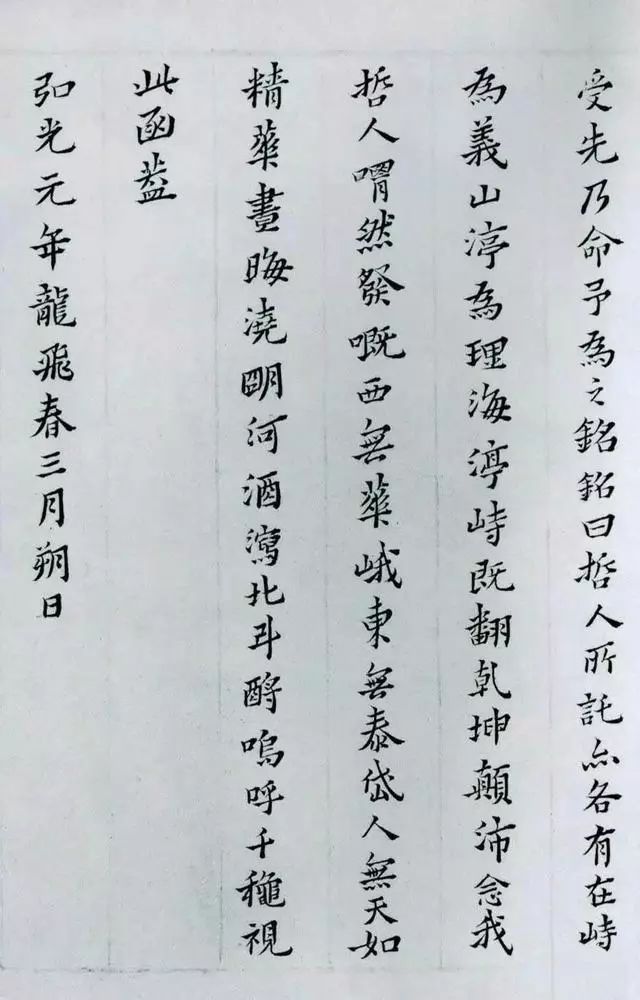 受先乃命予為之銘銘曰哲人所託亦各有在峙
為義山渟為理海渟峙既翻乾坤顛沛念我
哲人喟然發嘅西無華峨東無泰岱人無天如
精華晝晦澆朙河酒瀉北斗酹嗚呼千龝視
此函蓋
弘光元年龍飛春三月朔日